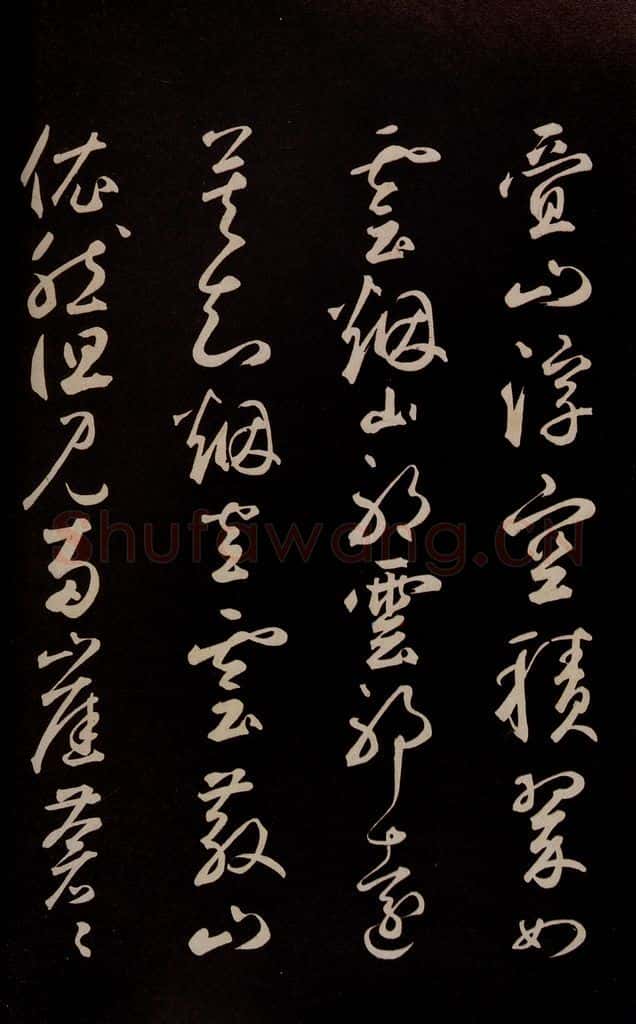 疊山浮空積翠如
雲烟山耶雲耶遠
莫知烟空雲散山
依然但見兩崖蒼々
Shufawang.cn